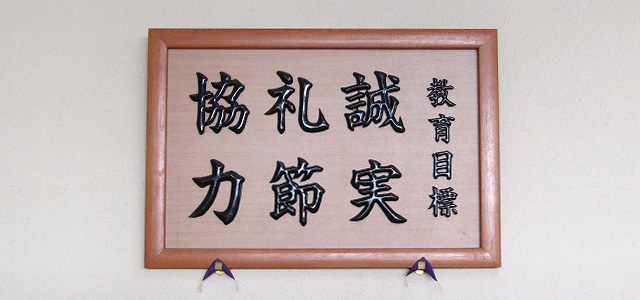 教育目標
誠実
礼節
協力